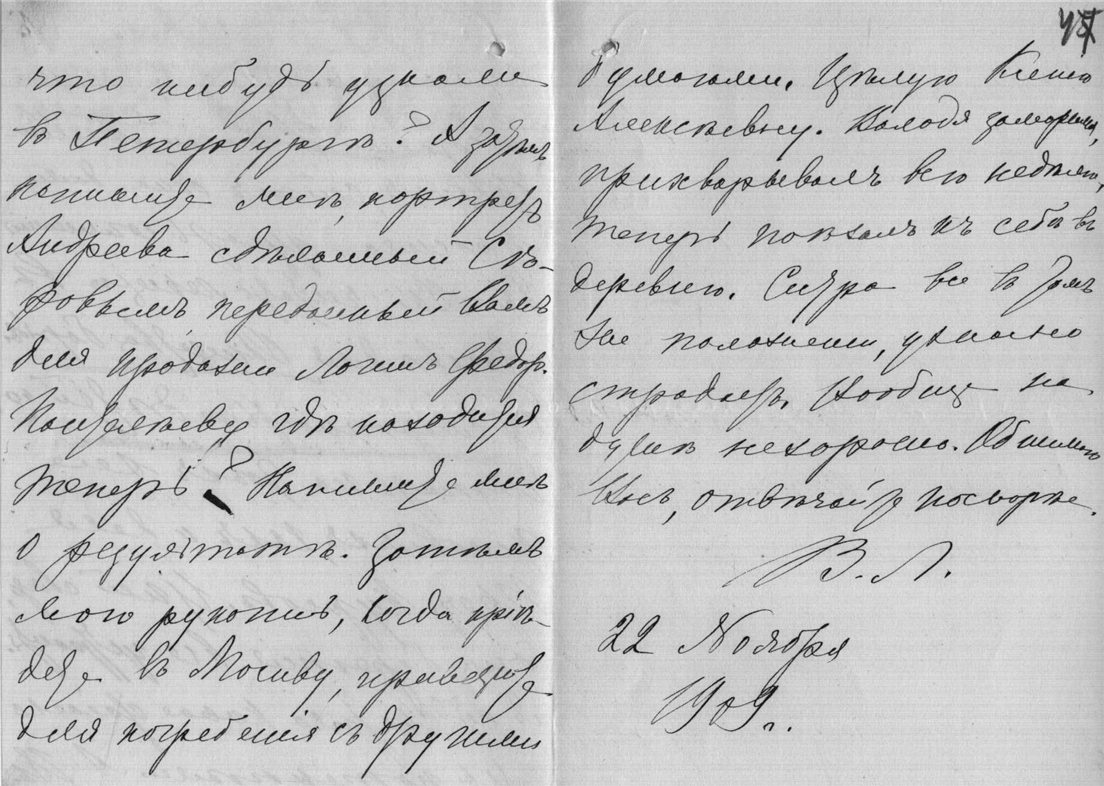 что нибудь узнали
въ Петербургѣ? А затѣмъ
напишите мнѣ, портретъ
Андреева сдѣланный Сѣ-
ровымъ, переданный Вамъ
для продажи Логин. Федор.
гдѣ находится
теперь? Напишите мнѣ
о результатѣ. Затѣмъ
мою рукопись, когда прiѣ-
дете въ Москву, привезите
для погребенiя съ другими
47
бумагами. Цѣлую Ксенiю
Алексѣевну. Володя захворалъ,
прихварывалъ всю недѣлю,
теперь поѣхалъ къ себѣ въ
деревню. Сестра все въ томъ
же положенiи, ужасно
страдаетъ. Вообще на
душѣ нехорошо. Обнимаю
Васъ, отвѣчайте поскорѣе.
В. Л.
22 Ноября
1909 г.